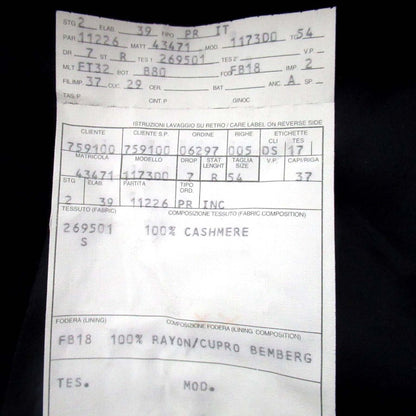 STG. 2 ELAB. 39 TIPO PR IT
PAR 11226 MATT 43471 MOD. 117300 TG 54
DR 7 ST R TES 1 269501 TES 2 V.P.
MLT FT32 BOT 880 FOD FB18 IMP. 2
FIL.IMP. 37 CUC. 29 CER. BAT ANC. A SP.
TAS.P. CINT.P. GINOC.
ISTRUZIONI LAVAGGIO SU RETRO / CARE LABEL ON REVERSE SIDE
CLIENTE CLIENTE S.P. ORDINE RIGHE ETICHETTE
CLI TES
759100 759100 06297 005 DS 17
MATRICOLA MODELLO DROP STAT LENGHT TAGLIA SIZE V.P. CAPI/RIGA
43471 117300 7 R 54 37
STG ELAB. PARTITA TIPO ORD.
2 39 11226 PR INC
TESSUTO (FABRIC) COMPOSIZIONE TESSUTO (FABRIC COMPOSITION)
269501 100% CASHMERE
S
FODERA (LINING) COMPOSIZIONE FODERA (LINING COMPOSITION)
FB18 100% RAYON/CUPRO BEMBERG
TES. MOD.